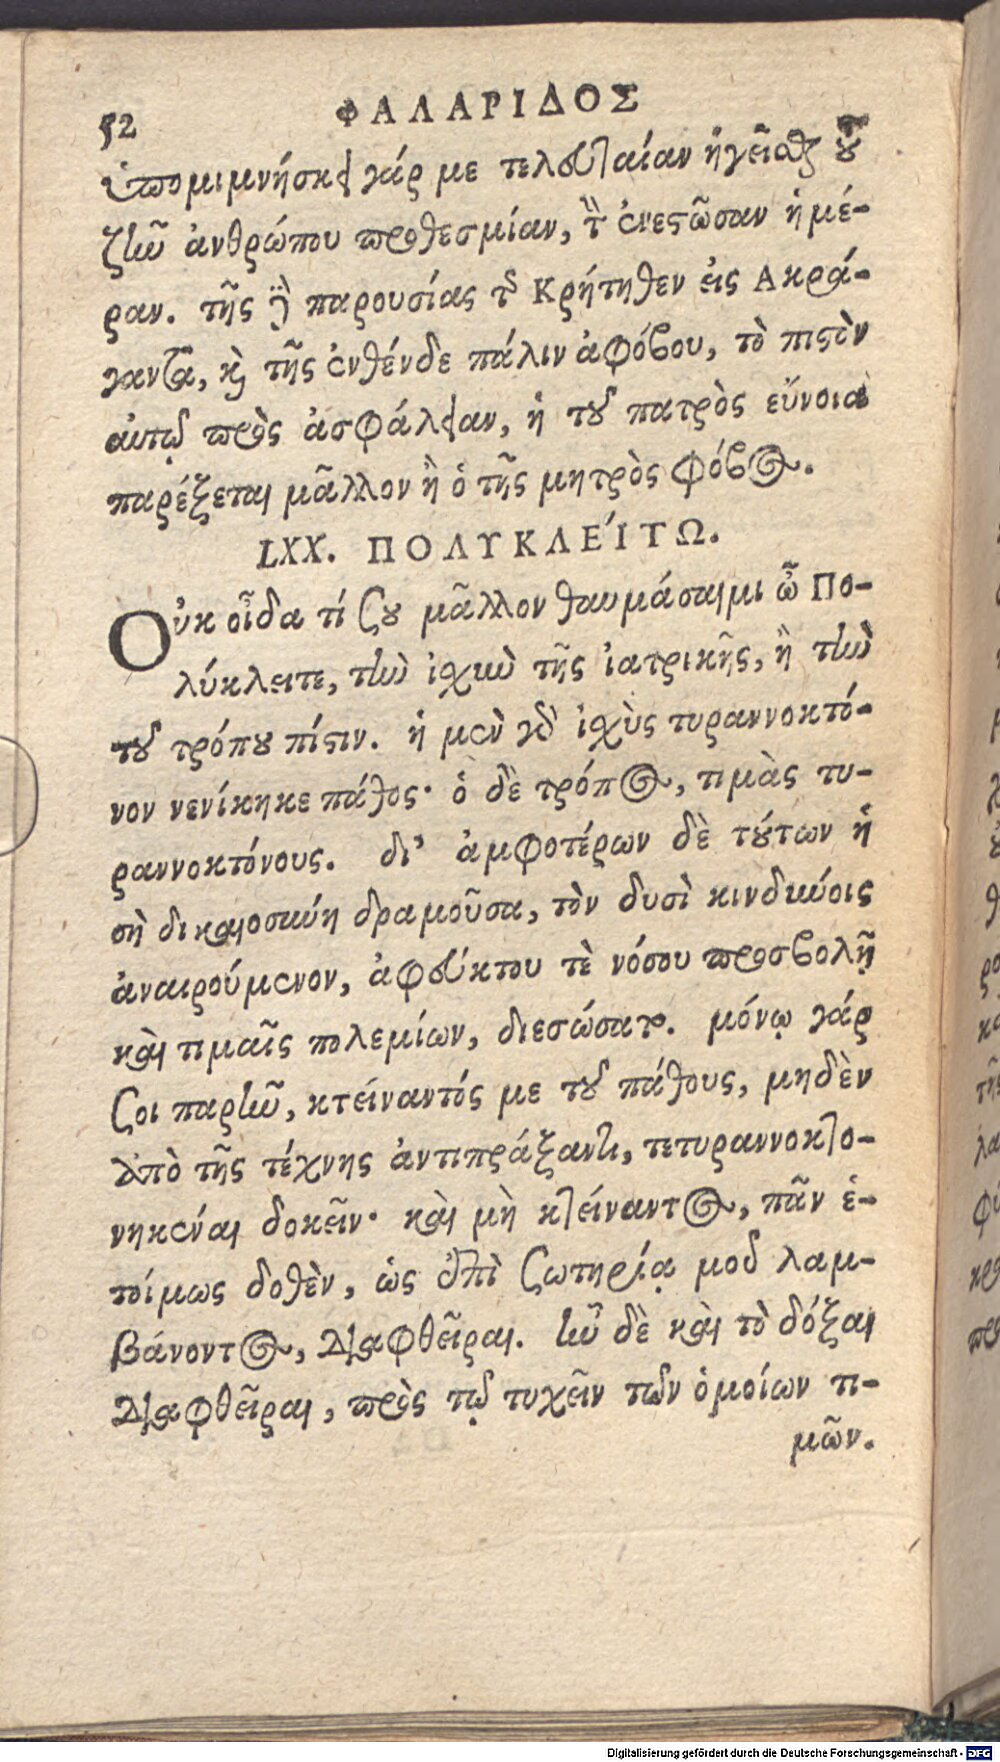 52 ΦΑΛΑΡΙΔΟΣ
ὑπομιμνήσκει γάρ με τελευταίαν ἡγεῖσθαι τοῦ
ζῆν ἀνθρώπου προθεσμίαν, τὴν ἐνεστῶσαν ἡμέ-
ραν. τῆς δὲ παρουσίας τῆς Κρήτηθεν εἰς Ακρά-
γαντα, καὶ τῆς ἐνθένδε πάλιν ἀφόβου, τὸ πιστὸν
αὐτῷ πρὸς ἀσφάλειαν, ἡ τοῦ πατρὸς εὔνοια
παρέξεται μᾶλλον ἢ ὁ τῆς μητρὸς φόβος.
LXX. ΠΟΛΥΚΛΕΊΤΩ.
Οὐκ οἶδα τί σου μᾶλλον θαυμάσαιμι ὦ Πο-
λύκλειτε, τὴν ἰσχὺν τῆς ἰατρικῆς, ἢ τὴν
τοῦ τρόπου πίστιν. ἡ μὲν γὰρ ἰσχὺς τυραννοκτό-
νον νενίκηκε πάθος· ὁ δὲ τρόπος, τιμὰς τυ-
ραννοκτόνους. δι' ἀμφοτέρων δὲ τούτων ἡ
σὴ δικαιοσύνη δραμοῦσα, τὸν δυσὶ κινδύνοις
ἀναιρούμενον, ἀφεύκτου τὲ νόσου προσβολῇ
καὶ τιμαῖς πολεμίων, διεσώσατο. μόνῳ γάρ
σοι παρῆν, κτείναντός με τοῦ πάθους, μηδὲν
ἀπὸ τῆς τέχνης ἀντιπράξαντι, τετυραννοκτο-
νηκέναι δοκεῖν· καὶ μὴ κτείναντος, πᾶν ἑ-
τοίμως δοθὲν, ὡς ἐπὶ σωτηρίᾳ μου λαμ-
βάνοντος, διαφθεῖραι. ἦν δὲ καὶ τὸ δόξαι
διαφθεῖραι, πρὸς τῷ τυχεῖν τῶν ὁμοίων τι-
μῶν.
Digitalisierung gefördert durch die Deutsche Forschungsgemeinschaft - DFG